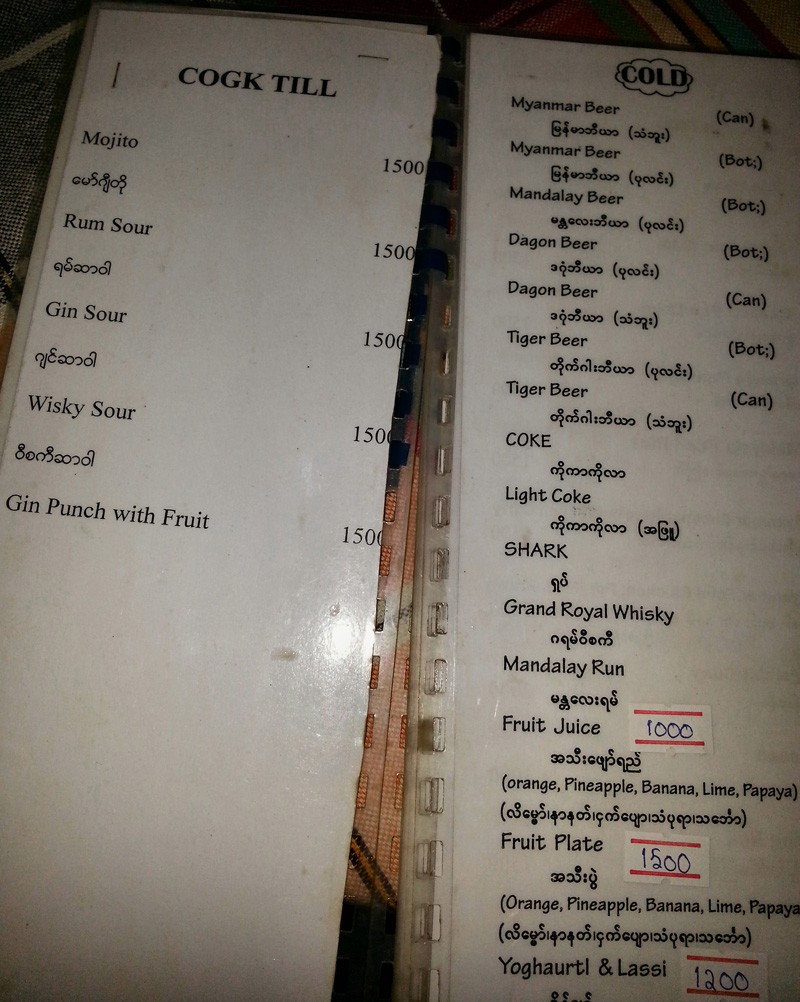 COGK TILL
Mojito
1500
မော်ဂျီတို
Rum Sour
1500
ရမ်ဆာဝါ
Gin Sour
1500
ဂျင်ဆာဝါ
Wisky Sour
1500
ဝီစကီဆာဝါ
Gin Punch with Fruit
1500
COLD
Myanmar Beer (Can)
မြန်မာဘီယာ (သံဘူး)
Myanmar Beer (Bot;)
မြန်မာဘီယာ (ပုလင်း)
Mandalay Beer (Bot;)
မန္တလေးဘီယာ (ပုလင်း)
Dagon Beer (Bot;)
ဒဂုံဘီယာ (ပုလင်း)
Dagon Beer (Can)
ဒဂုံဘီယာ (သံဘူး)
Tiger Beer (Bot;)
တိုက်ဂါးဘီယာ (ပုလင်း)
Tiger Beer (Can)
တိုက်ဂါးဘီယာ (သံဘူး)
COKE
ကိုကာကိုလာ
Light Coke
ကိုကာကိုလာ (အဖြူ)
SHARK
ရှပ်
Grand Royal Whisky
ဂရမ်ဝီစကီ
Mandalay Run
မန္တလေးရမ်
Fruit Juice 1000
အသီးဖျော်ရည်
(orange, Pineapple, Banana, Lime, Papaya)
(လိမ္မော်၊နာနတ်၊ငှက်ပျော၊သံပုရာ၊သင်္ဘော)
Fruit Plate 1500
အသီးပွဲ
(Orange, Pineapple, Banana, Lime, Papaya
(လိမ္မော်၊နာနတ်၊ငှက်ပျော၊သံပုရာ၊သင်္ဘော)
Yoghaurtl & Lassi 1200